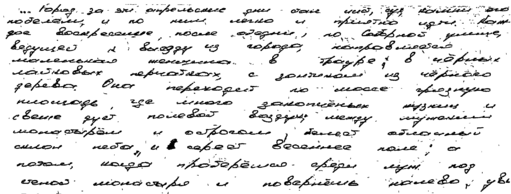 ... Город за эти апрельские дни стал чист, сух, камни его
побелели, и по ним легко и приятно идти. Каж
дое воскресенье, после обедни, по Соборной улице,
ведущей к выезду из города, направляется
маленькая женщина в трауре, в чёрных
лайковых перчатках, с зонтиком из чёрного
дерева. Она переходит по шоссе грязную
площадь, где много закопчёных кузниц и
свеже дует полевой воздух; между мужским
монастырём и острогом белеет облачный
склон неба, и сереет весеннее поле, а
потом, когда проберёшься среди луж под
стеной монастыря и повернёшь налево, уви